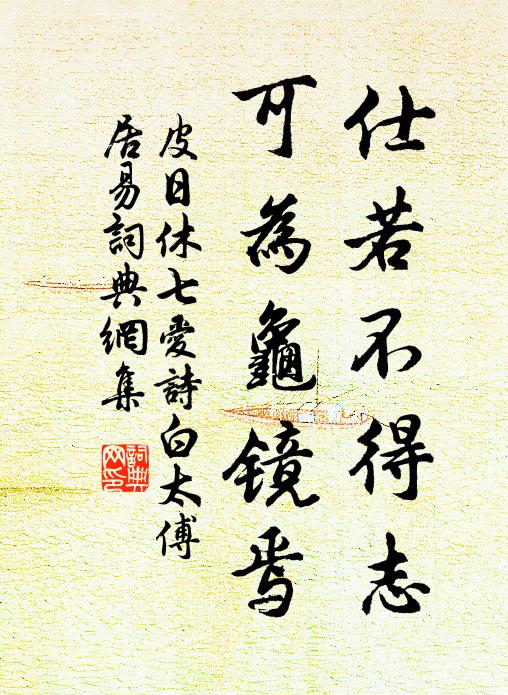 仕若不得志
可為龜镜焉
皮日休七愛詩白太傅
居易詞典網集
詞典
网印